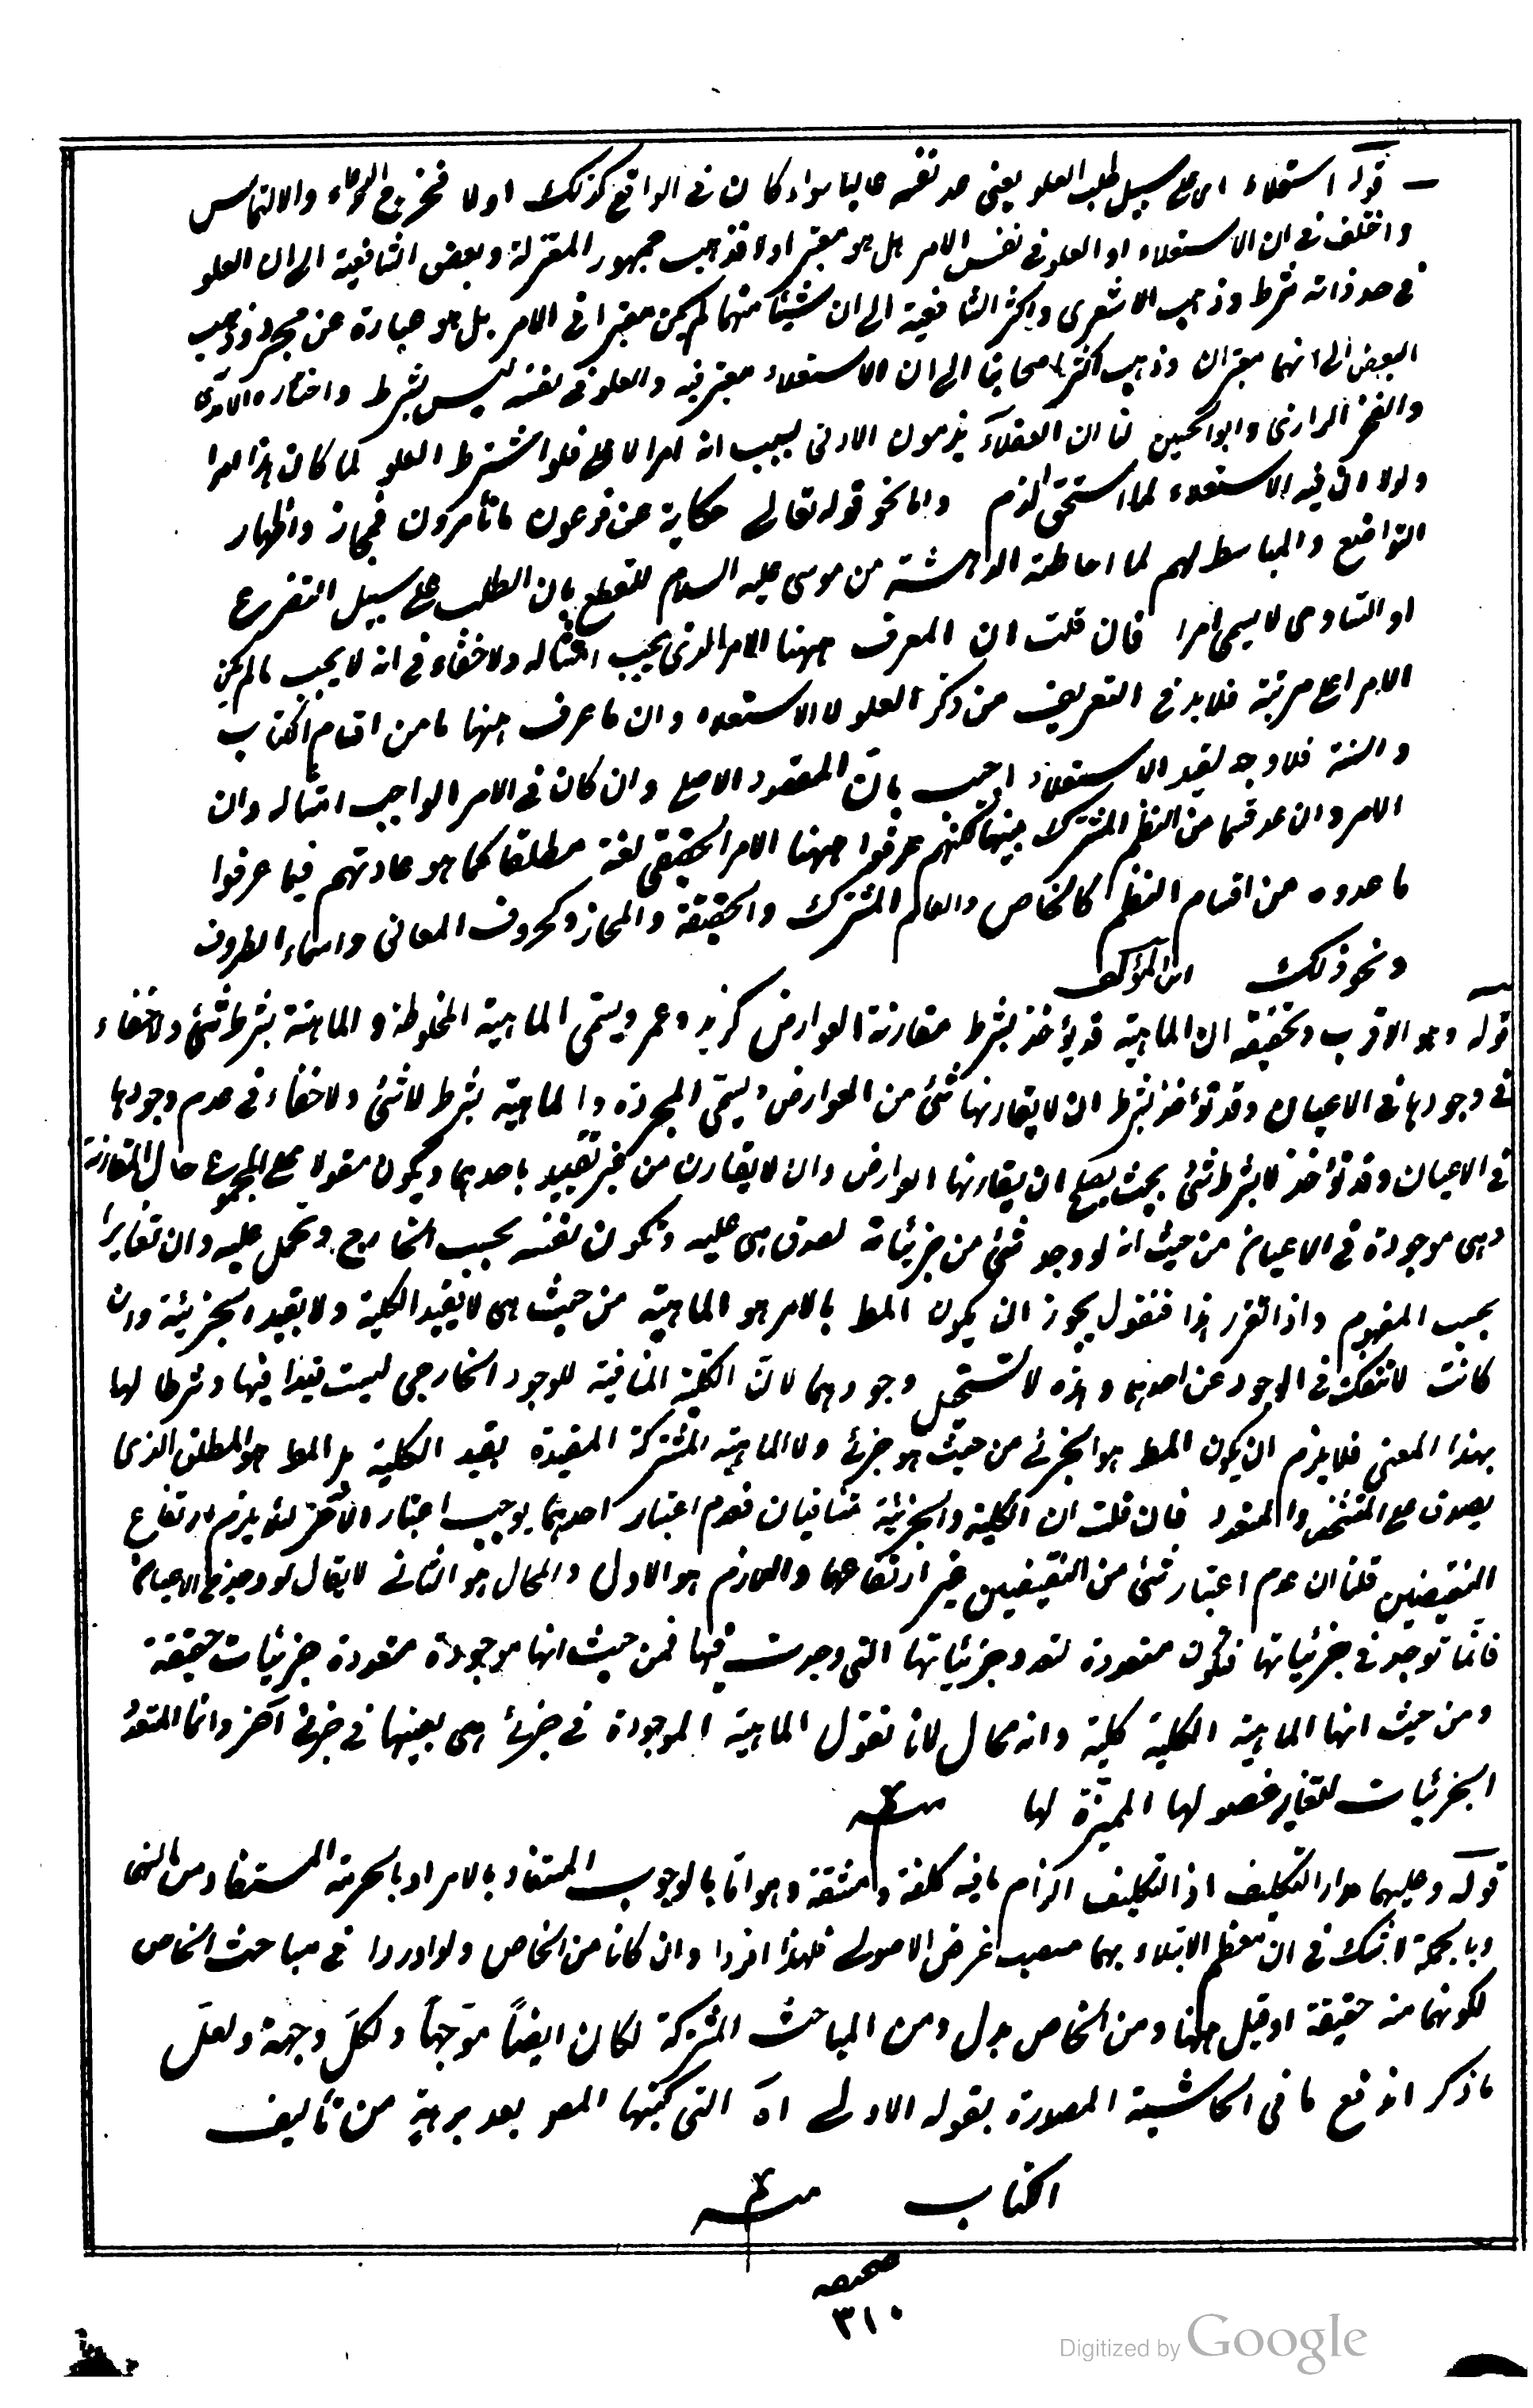 قوله استعلاء اى على سبيل طلب العلو يعنى عد نفسه عاليا سواء كان فى الواقع كذلك او لا فخرج الدعاء والالتماس
واختلف فى ان الاستعلاء او العلو فى نفس الامر هل هو معتبر او لا فذهب جمهور المعتزلة وبعض الشافعية الى ان العلو
فى حد ذاته شرط وذهب الاشعرى واكثر الشافعية الى ان شيئا منهما لم يكن معتبرا فى الامر بل هو عبارة عن مجرد وذهب
البعض الى انهما معتبران وذهب اكثر اصحابنا الى ان الاستعلاء معتبر فيه والعلو فى نفسه ليس بشرط واختاره الآمدى
والفخر الرازى وابو الحسين لنا ان العقلاء يذمون الادنى بسبب انه امر الاعلى فلو اشترط العلو لما كان هذا امرا
ولولا ان فيه الاستعلاء لما استحق الذم واما نحو قوله تعالى حكاية عن فرعون ماذا تأمرون فمجاز واظهار
التواضع والمباسط لهم لما احاطته الدهشة من موسى عليه السلام للقطع بان الطلب على سبيل التضرع
او التساوى لا يسمى امرا فان قلت ان المعرف ههنا الامر الذى يجب امتثاله ولا خفاء فى انه لا يجب ما لم يكن
الامر اعلى مرتبة فلا بد فى التعريف من ذكر العلو لا الاستعلاء وان ما عرف ههنا ما من اقسام الكتاب
والسنة فلا وجه لقيد الاستعلاء اجيب بان المقصود الاصلى وان كان فى الامر الواجب امتثاله وان
الامر وان عد قسما من النظم المشترك بينهما لكنهم عرفوا ههنا الامر الحقيقى لغة مطلقا كما هو عادتهم فيما عرفوا
ما عدوه من اقسام النظم كالخاص والعام المشترك والحقيقة والمجاز وكحروف المعانى واسماء الظروف
ونحو ذلك من المؤلف
قوله وهو الاقرب وتحقيقه ان الماهية قد يؤخذ بشرط مقارنة العوارض كزيد وعمر ويسمى الماهية المخلوطة والماهية بشرط شئ ولا خفاء
فى وجودها فى الاعيان وقد تؤخذ بشرط ان لا يقارنها شئ من العوارض ويسمى المجردة والماهية بشرط لا شئ ولا خفاء فى عدم وجودها
فى الاعيان وقد تؤخذ لا بشرط شئ بحيث يصلح ان يقارنها العوارض وان لا يقارن من غير تقييد باحدهما ويكون مقولا على المجموع حال المقارنة
وهى موجودة فى الاعيان من حيث انه لو وجد شئ من جزئياته لصدق هى عليه وتكون نفسه بحسب الخارج وتحمل عليه وان تغايرا
بحسب المفهوم واذا تقرر هذا فنقول يجوز ان يكون المط بالامر هو الماهية من حيث هى لا بقيد الكلية ولا بقيد الجزئية وان
كانت لا تنفك فى الوجود عن احدهما وهذه لا تستحيل وجودهما لان الكلية المنافية للوجود الخارجى ليست قيدا فيها وشرطا لها
بهذا المعنى فلا يلزم ان يكون المط هو الجزئى من حيث هو جزئى ولا الماهية المشتركة المقيدة بقيد الكلية بل المط هو المطلق الذى
يصدق على المتشخص والمتعدد فان قلت ان الكلية والجزئية متنافيان فعدم اعتبار احدهما يوجب اعتبار الآخر لئلا يلزم ارتفاع
النقيضين قلنا ان عدم اعتبار شئ من النقيضين غير ارتفاعهما واللازم هو الاول والمحال هو الثانى لا يقال لو وجد فى الاعيان
فانما توجد فى جزئياتها فتكون متعددة لتعدد جزئياتها التى وجدت فيها فمن حيث انها موجودة متعددة جزئيات حقيقة
ومن حيث انها الماهية الكلية كلية وانه محال لانا نقول الماهية الموجودة فى جزئى هى بعينها فى جزئى آخر وانما المتعدد
الجزئيات لتغاير فصولها المميزة لها منه
قوله وعليهما مدار التكليف اذ التكليف الزام ما فيه كلفة ومشقة وهو انما بالوجوب المستفاد بالامر او بالحرمة المستفاد من النهى
وبالجملة لا شك فى ان معظم الابتلاء بهما مسعب غرض الاصولى فلهذا افردا وان كانا من الخاص ولو اوردا فى مباحث الخاص
لكونهما منه حقيقة او قيل ههنا ومن الخاص بدل ومن المباحث المشتركة لكان ايضاً موجهاً ولكل وجهة ولعل
ما ذكر اندفع ما فى الحاشية المصدرة بقوله الاولى اه التى كتبها المص بعد برهة من تأليف
الكتاب منه
صحيفه
٣١٠
Digitized by Google